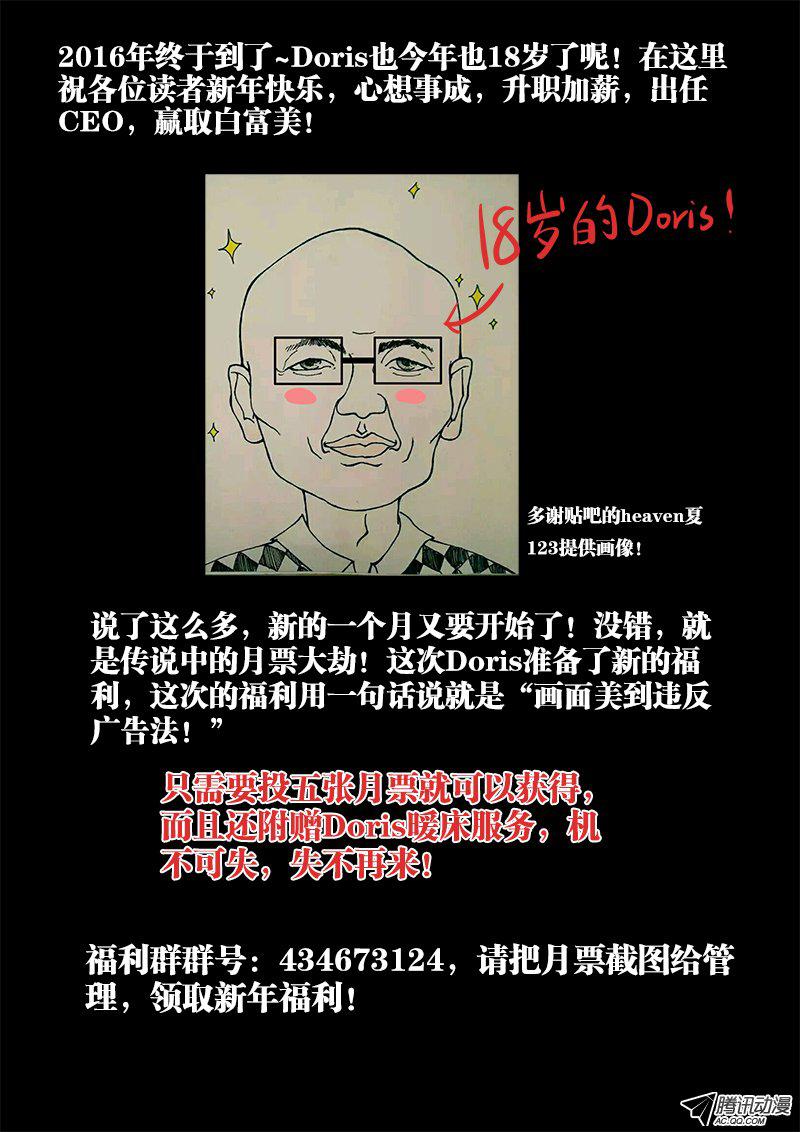 2016年终于到了~Doris也今年也18岁了呢！在这里
祝各位读者新年快乐，心想事成，升职加薪，出任
CEO，赢取白富美！
18岁的Doris！
多谢贴吧的heaven夏
123提供画像！
说了这么多，新的一个月又要开始了！没错，就
是传说中的月票大劫！这次Doris准备了新的福
利，这次的福利用一句话说就是“画面美到违反
广告法！”
只需要投五张月票就可以获得，
而且还附赠Doris暖床服务，机
不可失，失不再来！
福利群群号：434673124，请把月票截图给管
理，领取新年福利！
腾讯动漫
AC.QQ.COM